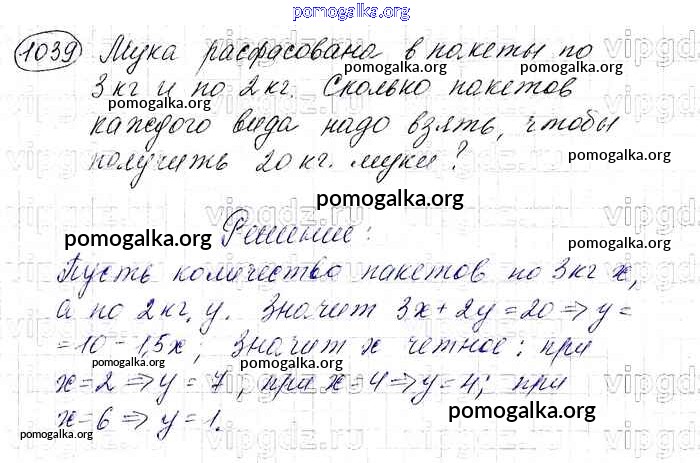 pomogalka.org
1039 Мука расфасована в пакеты по
3 кг и по 2 кг. Сколько пакетов
каждого вида надо взять, чтобы
получить 20 кг. муки?
Решение:
Пусть количество пакетов по 3 кг x,
а по 2 кг, y. Значит 3x + 2y = 20 ⇒ y =
= 10 - 1,5x; Значит x четное: при
x = 2 ⇒ y = 7, при x = 4 ⇒ y = 4; при
x = 6 ⇒ y = 1.
pomogalka.org
pomogalka.org
pomogalka.org
pomogalka.org
pomogalka.org
pomogalka.org
pomogalka.org
pomogalka.org
pomogalka.org
pomogalka.org
pomogalka.org
vipgdz.ru